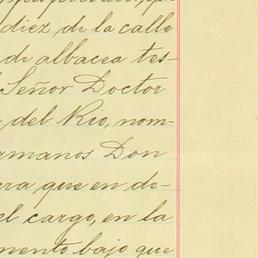 diez de la calle
de albacea tes-
Señor Doctor
del Rio, nom-
ermanos Don
ara que en de-
el cargo, en la
mento bajo que